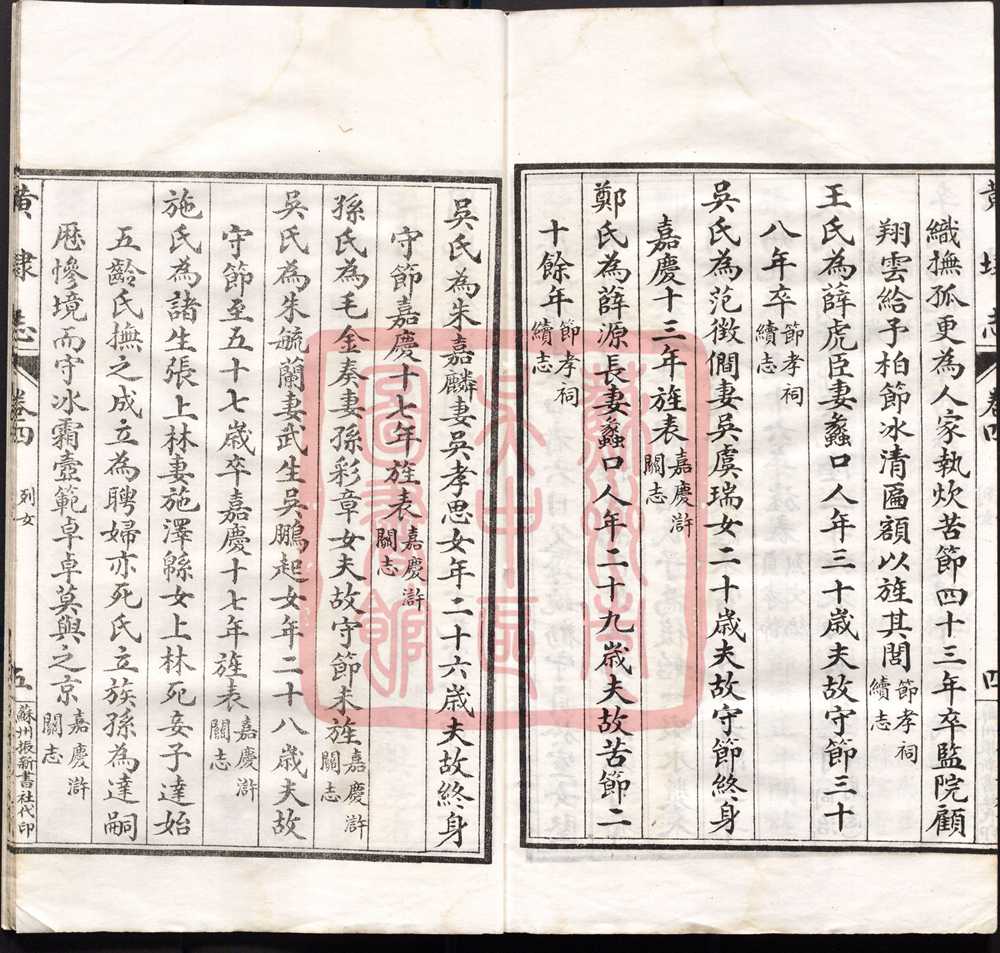 織撫孤更為人家執炊苦節四十三年卒監院顧
翔雲給予柏節冰清匾額以旌其閭節孝祠續志
王氏為薛虎臣妻蠡口人年三十歲夫故守節三十
八年卒節孝祠續志
吳氏為范徵僴妻吳虞瑞女二十歲夫故守節終身
嘉慶十三年旌表嘉慶滸關志
鄭氏為薛源長妻蠡口人年二十九歲夫故苦節二
十餘年節孝祠續志
吳氏為朱嘉麟妻吳孝思女年二十六歲夫故終身
守節嘉慶十七年旌表嘉慶滸關志
孫氏為毛金奏妻孫彩章女夫故守節未旌嘉慶滸關志
吳氏為朱毓蘭妻武生吳鵬起女年二十八歲夫故
守節至五十七歲卒嘉慶十七年旌表嘉慶滸關志
施氏為諸生張上林妻施澤緜女上林死妾子達始
五齡氏撫之成立為聘婦亦死氏立族孫為達嗣
歷慘境而守冰霜壼範卓卓莫與之京嘉慶滸關志
志 卷四 列女 五 蘇州振新書社代印
蘇州市
吳中區
圖書館